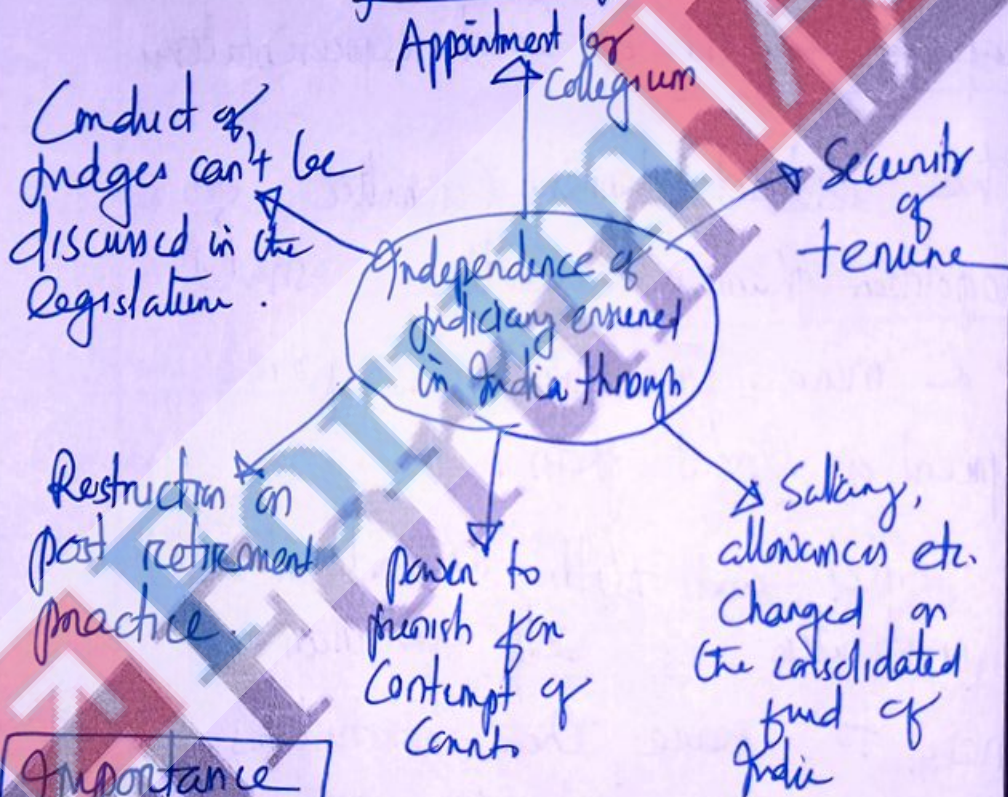 Appointment by
Collegium
Conduct of
judges can't be
discussed in the
legislature.
Security
of
tenure
Independence of
judiciary ensured
in India through
Restriction on
post retirement
practice.
power to
punish for
Contempt of
Courts
Salary,
allowances etc.
Charged on
the consolidated
fund of
India
Importance
ForumIAS